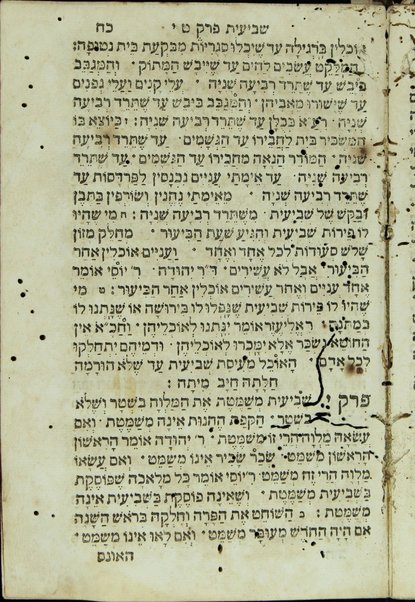 שביעית פרק ט י כח
אוכלין ברגילה עד שיכלו סגריות מבקעת בית נטופה:
המלקט עשבים לחים עד שייבש המתוק והמגבב
ביבש עד שתרד רביעה שניה עלי קנים ועלי גפנים
עד שישורו מאביהן והמגבב ביבש עד שתרד רביעה
שניה ר״ע א בכלן עד שתרד רביעה שניה: כיוצא בו
המשכיר בית לחבירו עד הגשמים עד שתרד רביעה
שניה המודר הנאה מחבירו עד הגשמים עד שתרד
רביעה שניה עד אימתי עניים נכנסין לפרדסות עד
שתרד רביעה שניה מאימתי נהנין ושורפין בתבן
ובקש של שביעית משתרד רביעה שניה: ח מי שהיו
לו פירות שביעית והגיע שעת הביעור מחלק מזון
שלש סעודות לכל אחד ואחד ועניים אוכלין אחר
הביעור אבל לא עשירים ד״ר יהודה ר׳ יוסי אומר
אחד עניים ואחד עשירים אוכלין אחר הביעור: ט מי
שהיו לו פירות שביעית שנפלו לו בירושה או שנתנו לו
במתנה ר׳ אליעזר אומר ינתנו לאוכליהן וחכ״א אין
החוטא נשכר אלא ימכרו לאוכליהן ודמיהם יתחלקו
לכל אדם האוכל מעיסת שביעית עד שלא הורמה
חלתה חייב מיתה:
פרק י שביעית משמטת את המלוה בשטר ושלא
בשטר הקפת החנות אינה משמטת ואם
עשאה מלוה הרי זו משמטת ר׳ יהודה אומר הראשון
הראשון משמט שכר שכיר אינו משמט ואם עשאו
מלוה הרי זה משמט ר׳ יוסי אומר כל מלאכה שפוסקת
בשביעית משמטת ושאינה פוסקת בשביעית אינה
משמטת: ב השוחט את הפרה וחלקה בראש השנה
אם היה החדש מעובר משמט ואם לאו אינו משמט
האונס